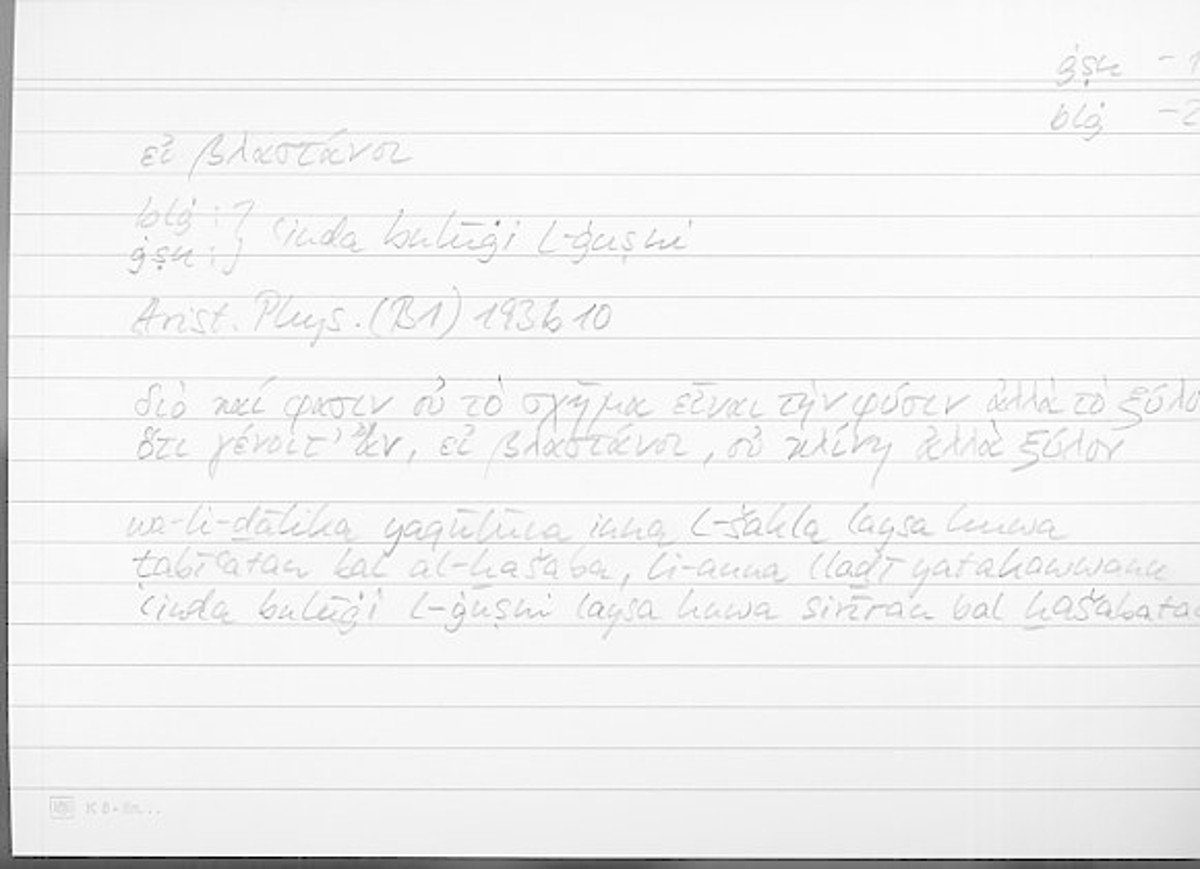 ġṣn -1
blġ -2
εἰ βλαστάνοι
blġ :}
ġṣn :} ʿinda bulūġi l-ġuṣni
Arist. Phys. (B1) 193b10
διό καί φασιν οὐ τὸ σχῆμα εἶναι τὴν φύσιν ἀλλὰ τὸ ξύλο
ὅτι γένοιτ' ἄν, εἰ βλαστάνοι, οὐ κλίνη ἀλλὰ ξύλον
wa-li-ḏālika yaqūlūna inna l-šakla laysa huwa
ṭabīʿatan bal al-ḫašaba, li-anna llaḏī yatakawwanu
ʿinda bulūġi l-ġuṣni laysa huwa sirīran bal ḫašabata